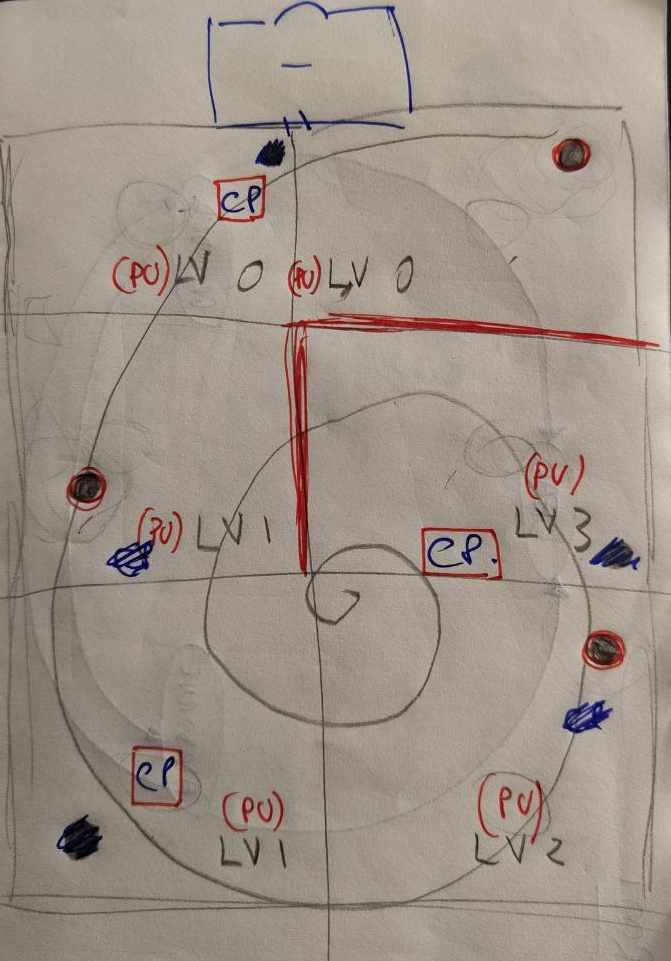 CP
(PU) LV 0 (PU) LV 0
(PU)
LV 3
(PU) LV 1
CP.
CP
(PU)
LV 1
(PU)
LV 2